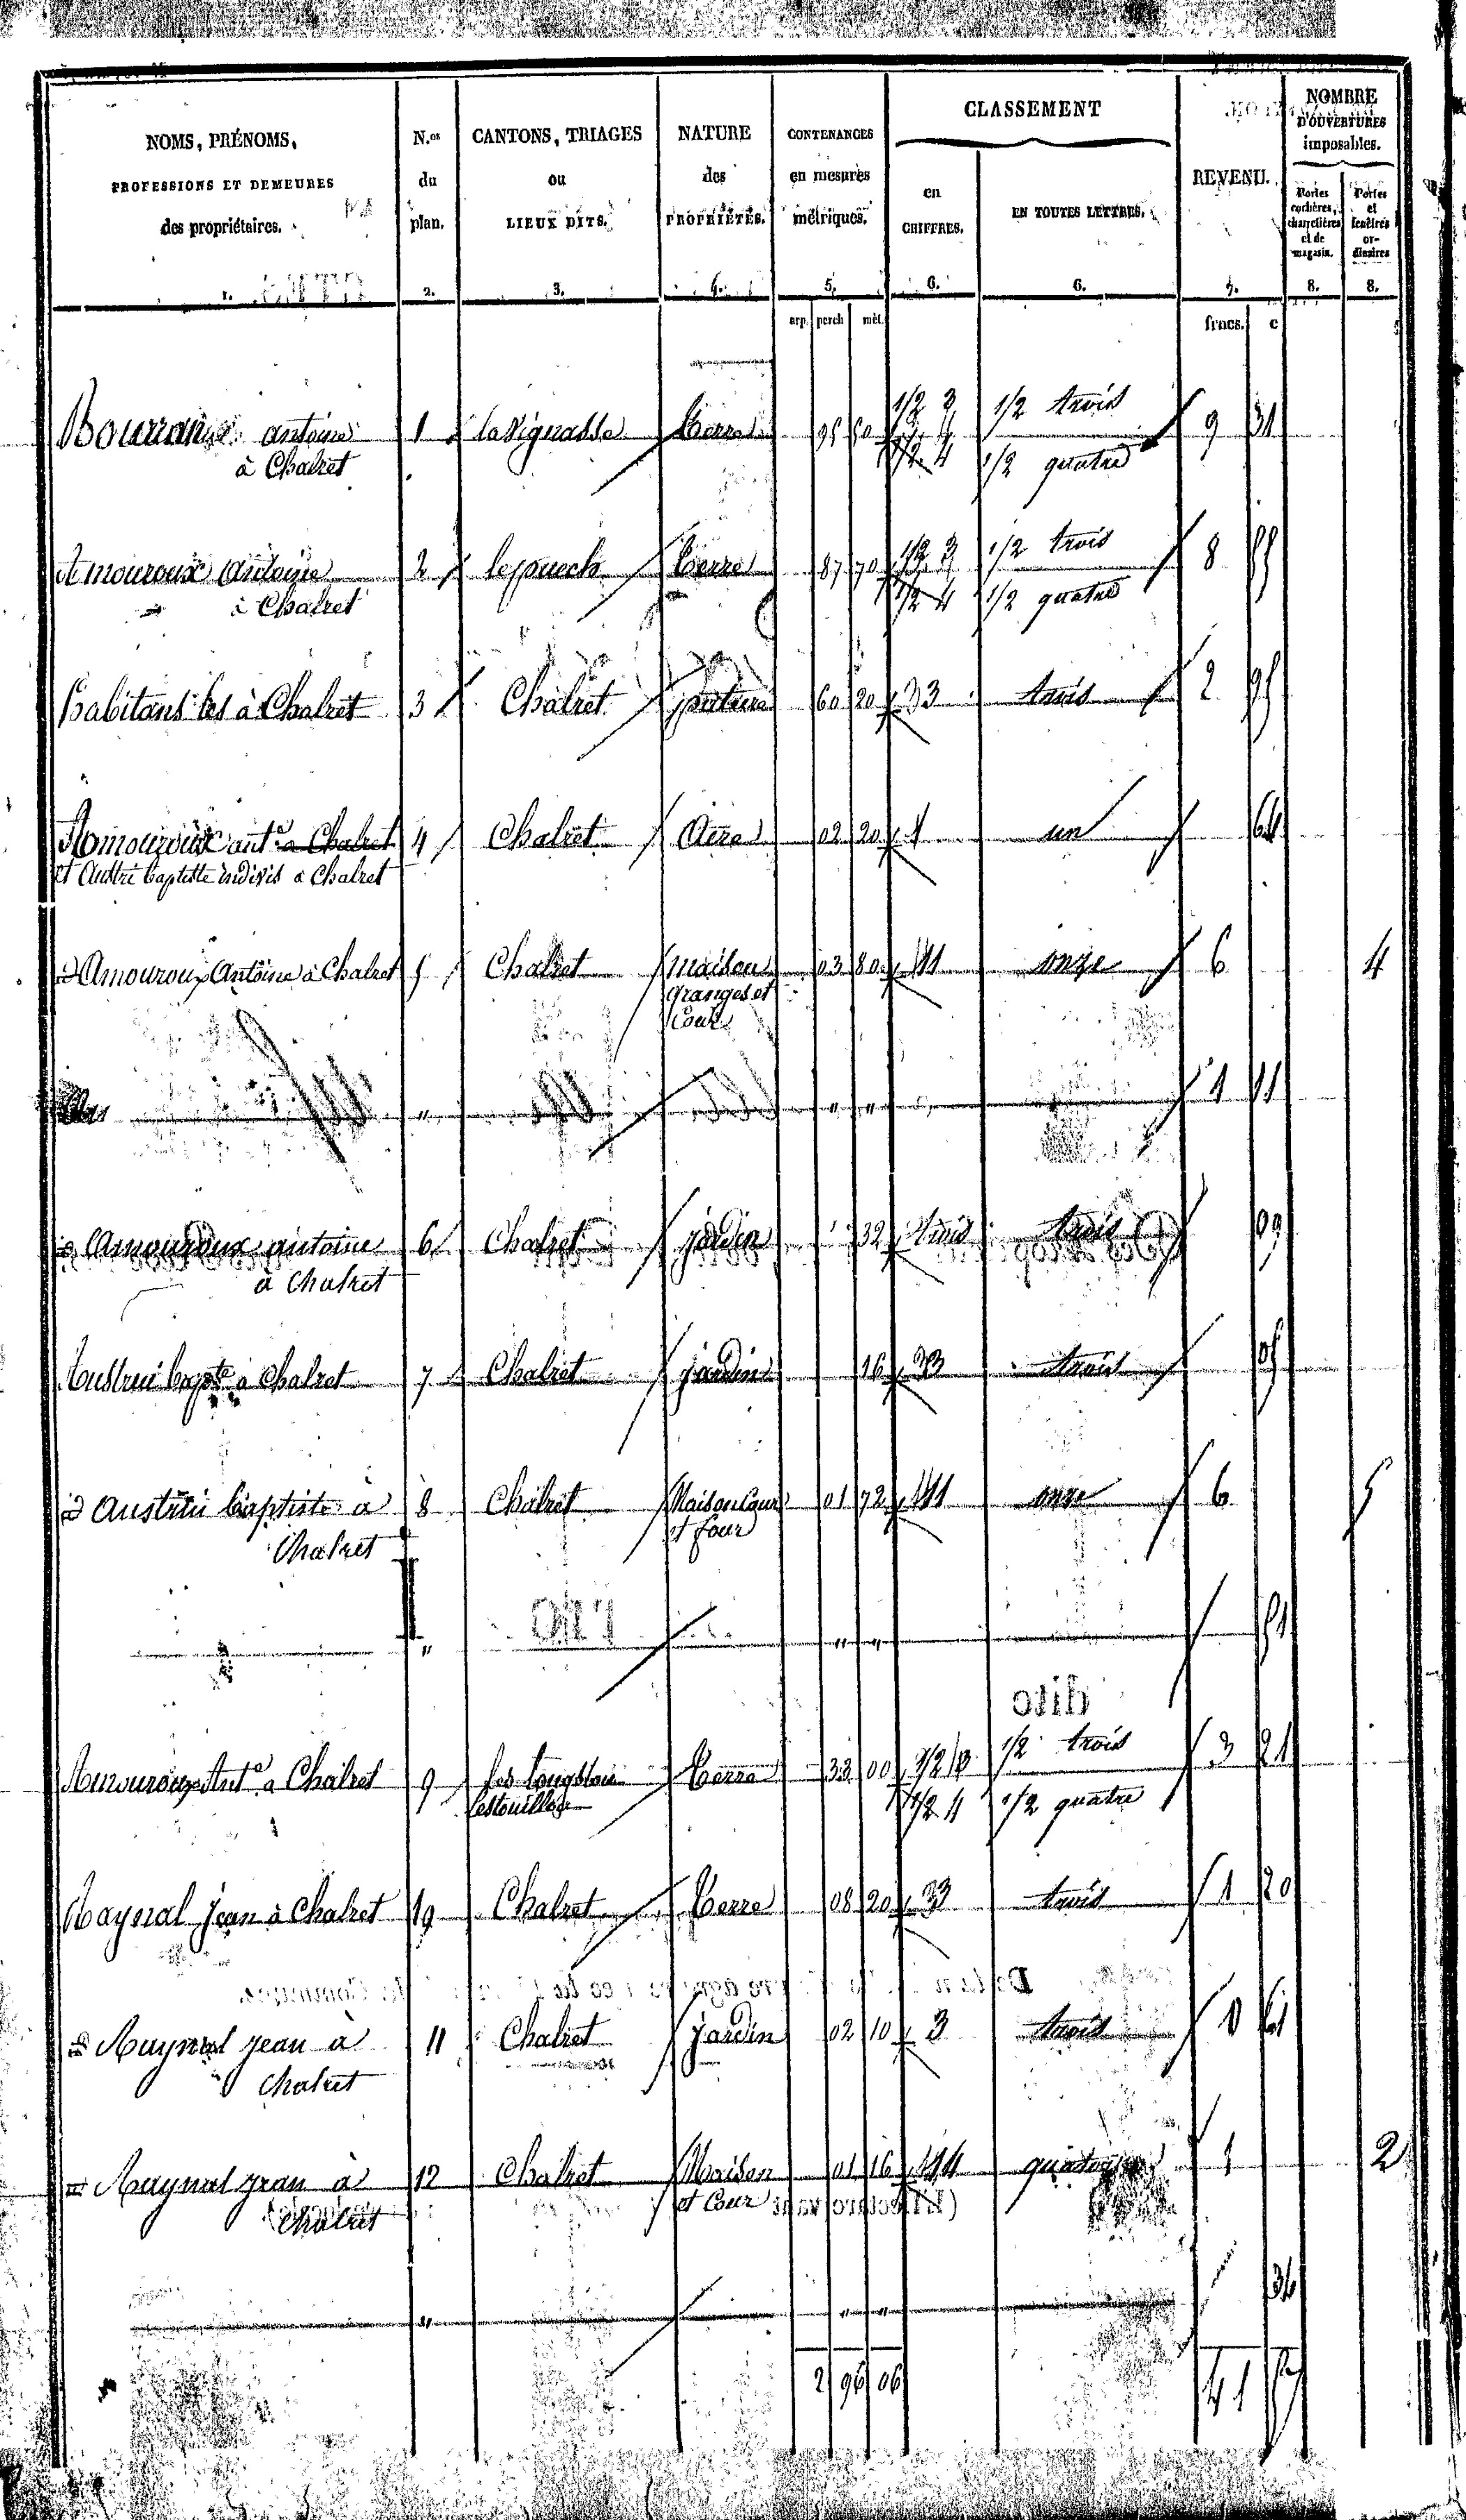 NOMS, PRÉNOMS, PROFESSIONS ET DEMEURES des propriétaires. 1.
N.os du plan. 2.
CANTONS, TRIAGES ou LIEUX DITS. 3.
NATURE des PROPRIÉTÉS. 4.
CONTENANCES en mesures métriques. 5.
CLASSEMENT
en CHIFFRES. 6.
EN TOUTES LETTRES. 6.
REVENU. 7.
NOMBRE D'OUVERTURES imposables.
Portes cochères, charretières et de magasin. 8.
Portes et fenêtres ordinaires 8.
arp. perch mèt. francs. c
antoine 1 la Vignasse terre 95 50 1/2 3 1/2 trois 9 31
à Chalret 1/2 4 1/2 quatre
Amouroux Antoine 2 le puech terre 87 70 1/2 3 1/2 trois 8 55
à Chalret 1/2 4 1/2 quatre
habitans les à Chalret 3 Chalret pature 60 20 3 trois 2 95
Amouroux ant.e à Chalret 4 Chalret Aire 02 20 1 un 64
et Austrui baptiste indivis a Chalret
Amouroux Antoine à Chalret 5 Chalret maison 03 80 11 onze 6 4
granges et
Cour
" " " 1 11
Amouroux antoine 6 Chalret jardin 32 trois trois 09
à Chalret
Austrui bapte à Chalret 7 Chalret jardin 16 3 trois 05
Austrui baptiste à 8 Chalret Maison Cour 01 72 11 onze 6 5
Chalret et four
" " " 51
Amouroux Ant.e à Chalret 9 terre 33 00 1/2 3 1/2 trois 3 21
1/2 4 1/2 quatre
Raynal Jean à Chalret 10 Chalret terre 08 20 3 trois 1 20
Raynal Jean à 11 Chalret jardin 02 10 3 trois 61
Chalret
Raynal Jean à 12 Chalret Maison 01 16 14 quatorze 1 2
Chalret et Cour
" " " 34
2 96 06 41